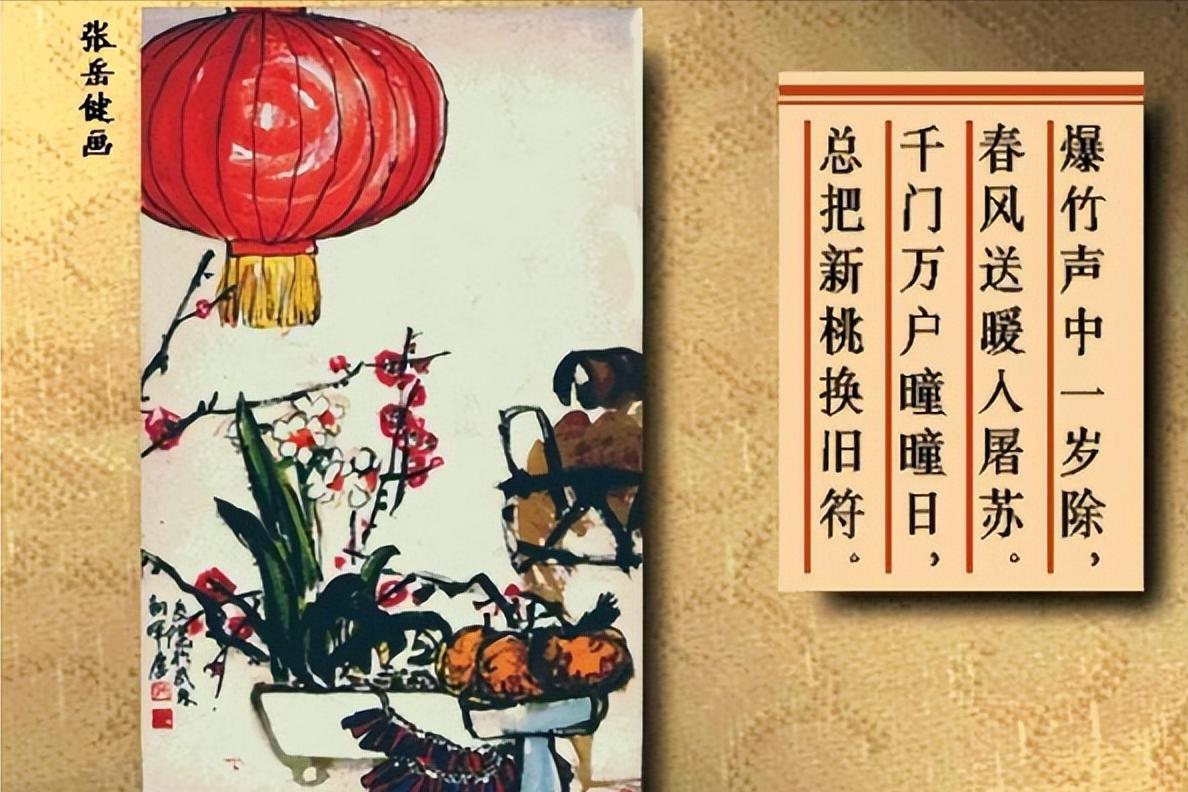 张岳健画
爆竹声中一岁除，
春风送暖人屠苏。
千门万户曈曈日，
总把新桃换旧符。